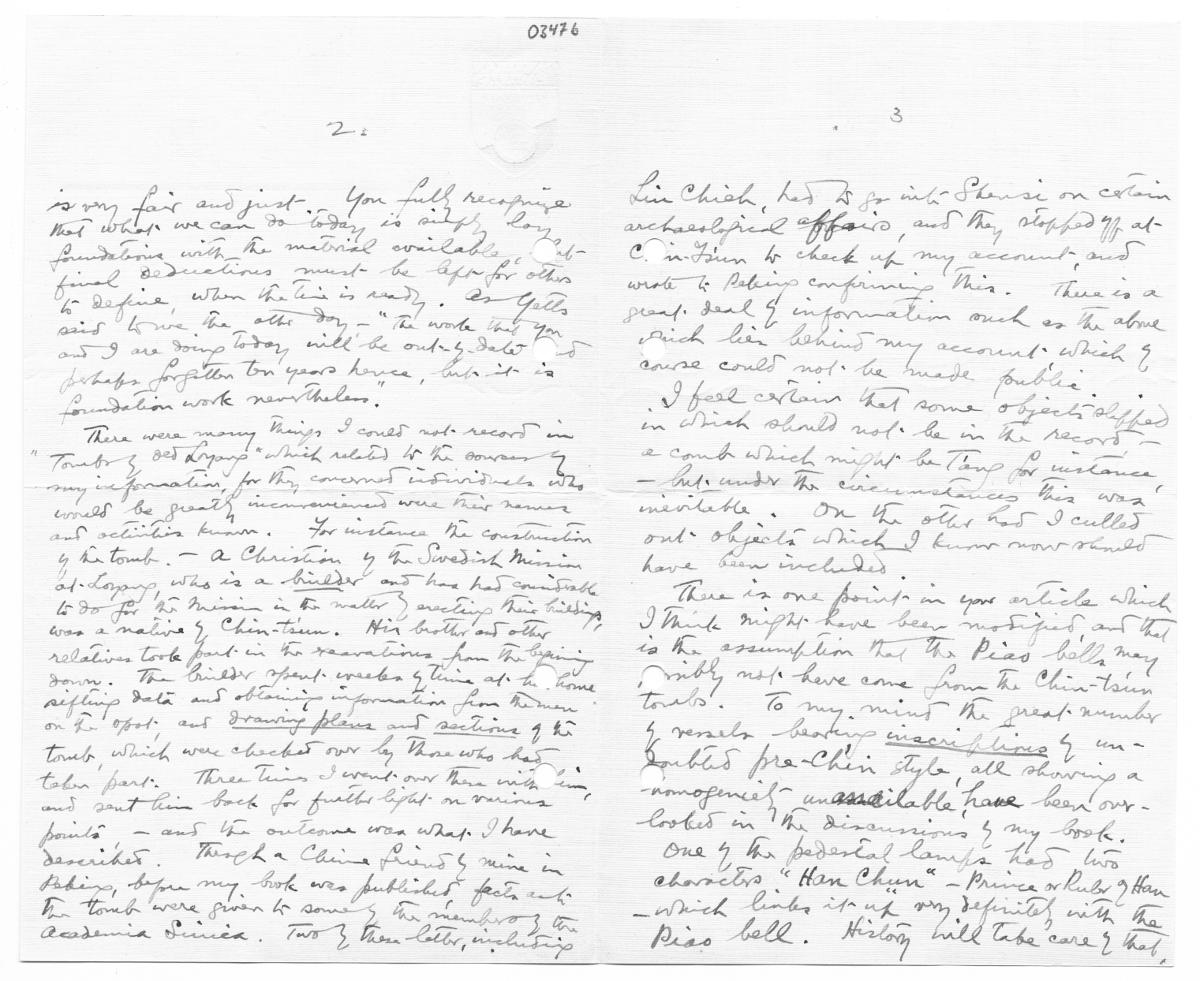 03476
2.
is very fair and just. You fully recognize
that what we can do today is simply lay
foundations with the material available, but
final deductions must be left for others
to define, when the time is ready. As Yetts
said to me the other day – "The work that you
and I are doing today will be out-of-date and
perhaps forgotten ten years hence, but it is
foundation work nevertheless."
There were many things I could not record in
"Tombs of Old Loyang" which related to the sources of
my information, for they concerned individuals who
would be greatly inconvenienced were their names
and activities known. For instance the construction
of the tomb. – A Christian of the Swedish Mission
at Loyang, who is a builder and has had considerable
to do for the Mission in the matter of erecting their buildings,
was a native of Chin-ts'un. His brother and other
relatives took part in the excavations from the begining
down. The builder spent weeks of time at his home
sifting data and obtaining information from the men
on the spot, and drawing plans and sections of the
tomb, which were checked over by those who had
taken part. Three times I went over these with him,
and sent him back for further light on various
points, – and the outcome was what I have
described. Through a Chinese friend of mine in
Peking, before my book was published, facts anent
the tomb were given to some of the members of the
Academia Sinica. Two of these latter, including
3
Liu Chieh, had to go into Shensi on certain
archaeological affairs, and they stopped off at
Chin-Ts'un to check up my account, and
wrote to Peking confirming this. There is a
great deal of information such as the above
which lies behind my account, which of
course could not be made public.
I feel certain that some objects slipped
in which should not be in the record, –
a comb which might be T'ang for instance,
– but under the circumstances this was
inevitable. On the other had I culled
out objects which I know now should
have been included.
There is one point in your article which
I think might have been modified, and that
is the assumption that the Piao bells may
possibly not have come from the Chin-ts'un
tombs. To my mind the great number
of vessels bearing inscriptions of un-
doubted pre-Chin style, all showing a
homogeniety unassailable, have been over-
looked in the discussions of my book.
One of the pedestal lamps had two
characters "Han Chun" – Prince or Ruler of Han
– which links it up very definitely with the
Piao bell. History will take care of that,